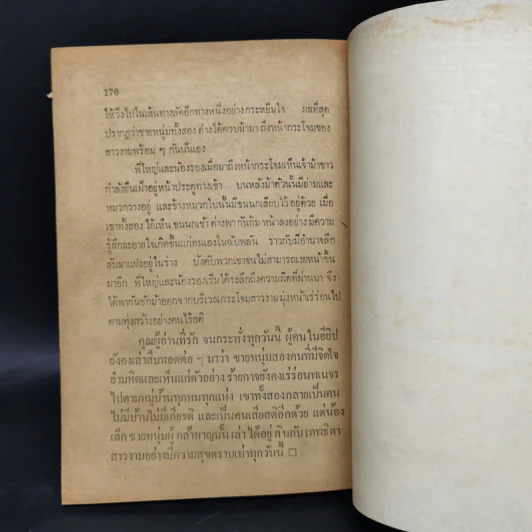 176
ให้วิ่งไปในเส้นทางลัดอีกทางหนึ่งอย่างกระหยิ่มใจ ผลที่สุด
ปรากฏว่าชายหนุ่มทั้งสอง ต่างได้ควบม้ามา ถึงหน้ากระโจมของ
สาวงามพร้อม ๆ กันนั่นเอง
พี่ใหญ่และน้องรองเมื่อมาถึงหน้ากระโจมเห็นเจ้าม้าขาว
กำลังยืนเฝ้าอยู่หน้าประตูทางเข้า บนหลังม้าตัวนั้นมีย่ามและ
หมวกวางอยู่ และข้างหมวกใบนั้นมีขนนกเสียบไว้อยู่ด้วย เมื่อ
เขาทั้งสอง ได้เห็น ขนนกเข้า ต่างพา กันก้ม หน้าลงอย่าง มีความ
รู้สึกละอายใจเกิดขึ้นแก่ตนเองในฉับพลัน ราวกับมีอำนาจลึก
ลับมาแฝงอยู่ในร่าง บังคับพวกเขาจนไม่สามารถเงยหน้าขึ้น
มาอีก พี่ใหญ่และน้องรองเริ่มได้ระลึกถึงความผิดที่ผ่านมา จึง
ได้พากันชักม้าออกจากบริเวณกระโจมสาวงามมุ่งหน้าเร่ร่อนไป
ตามทุ่งกว้างอย่างคนไร้สติ
คุณผู้อ่านที่รัก จนกระทั่งทุกวันนี้ ผู้คน ในอียิป
ยังคงเล่าสืบทอดต่อ ๆ มาว่า ชายหนุ่มสองคนที่มีจิตใจ
อำมหิตและเห็นแก่ตัวอย่าง ร้ายกาจยังคงเร่ร่อนพเนจร
ไปตามหมู่บ้านทุกหนทุกแห่ง เขาทั้งสองกลายเป็นคน
ไม่มีบ้านไม่มีเกียรติ และเป็นคนเสียสติอีกด้วย แต่น้อง
เล็ก ชายหนุ่มผู้ กล้าหาญนั้น เล่า ได้อยู่ กินกับ เทพธิดา
สาวงามอย่างมีความสุขตราบเท่าทุกวันนี้ □